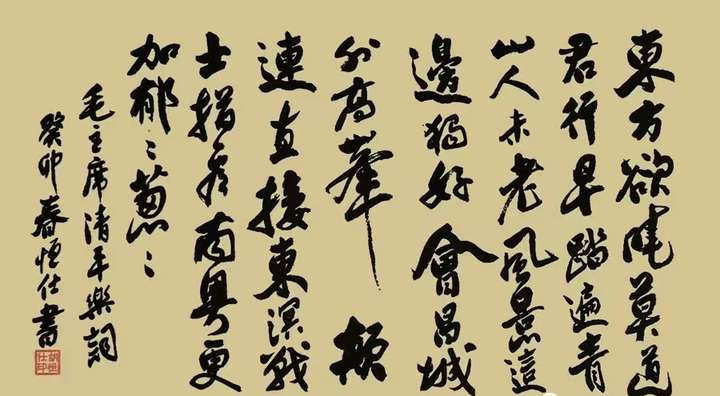 東方欲曉莫道
君行早踏遍青
山人未老风景這
邊獨好會昌城
外高峯顛
連直接東溟戰
士指看南粤更
加郁〻葱〻
毛主席清平樂詞
癸卯春恒仕書